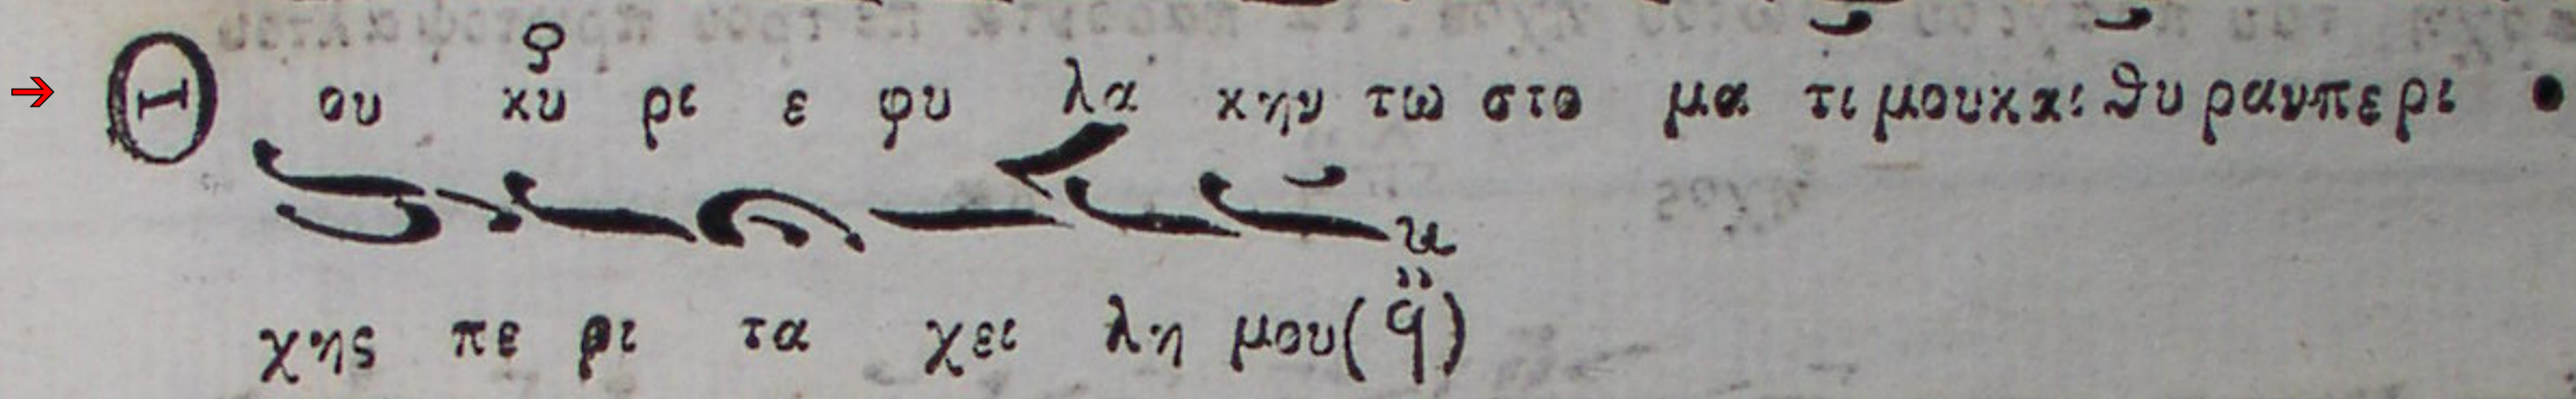 Θου κυ ρι ε φυ λα κην τω στο μα τι μου και θυ ραν πε ρι ο
χης πε ρι τα χει λη μου (ϥ)